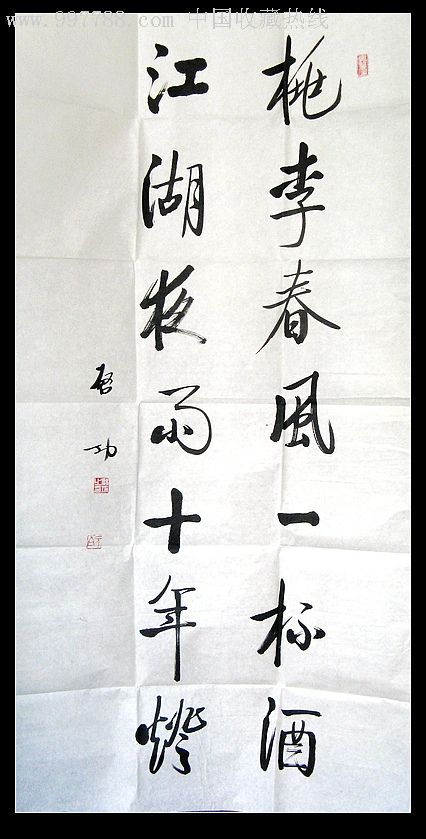 www.997788.com 中国收藏热线
桃李春風一杯酒
江湖夜雨十年燈
啓功